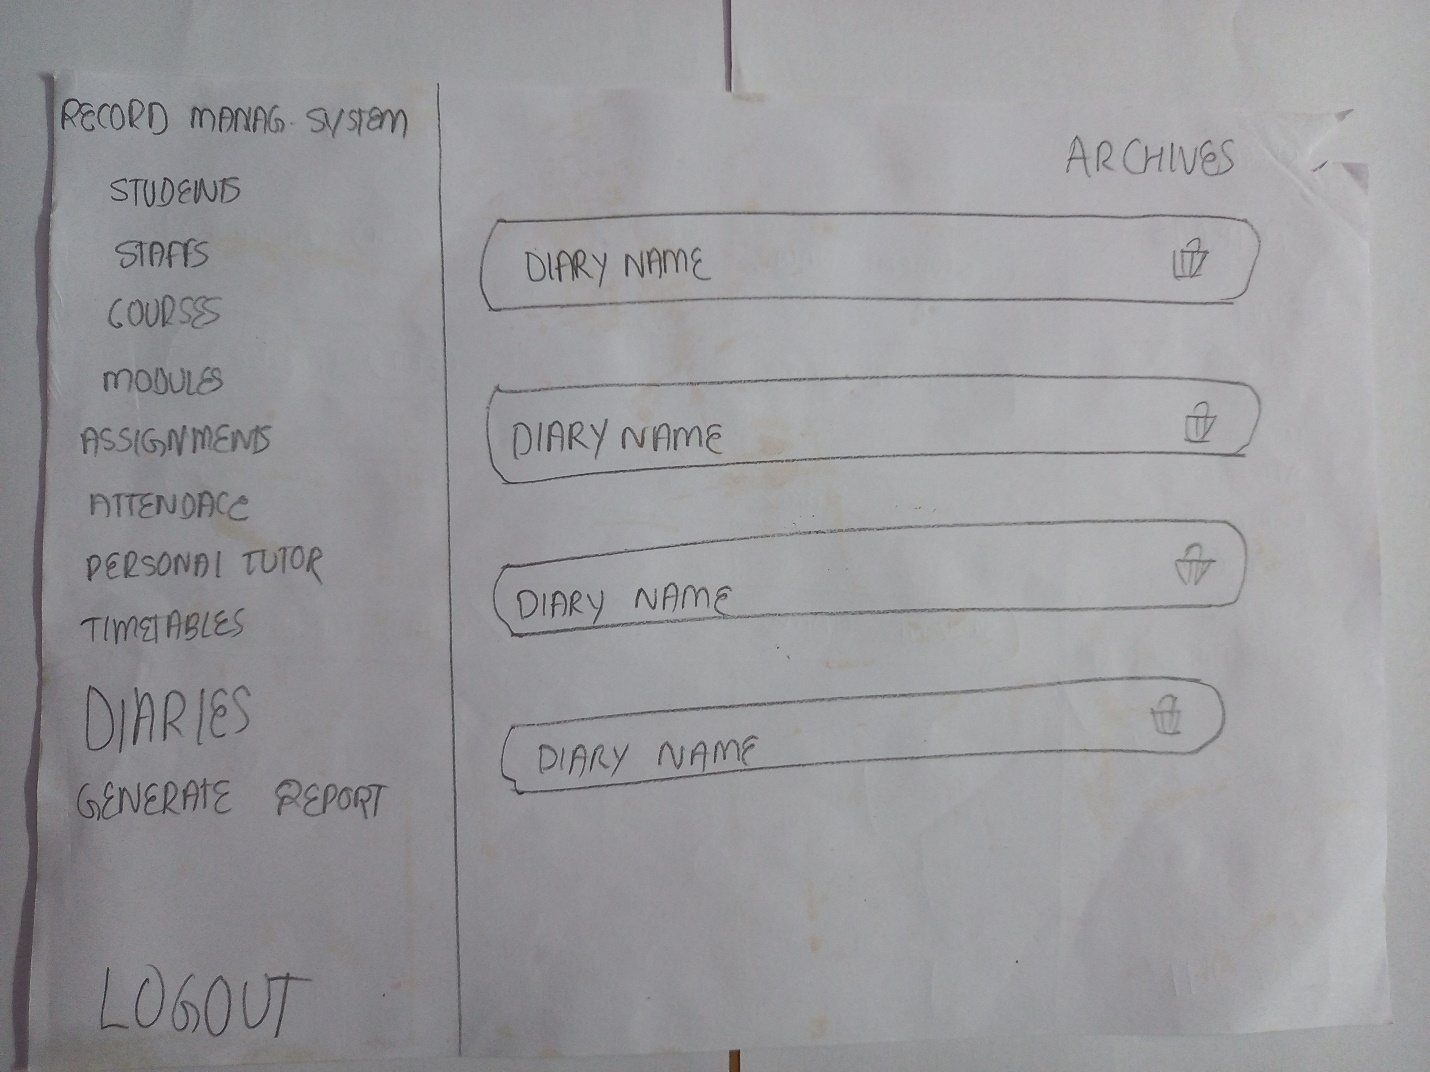 RECORD MANAG. SYSTEM
STUDENTS
STAFFS
COURSES
MODULES
ASSIGNMENTS
ATTENDACE
PERSONAL TUTOR
TIMETABLES
DIARIES
GENERATE REPORT
LOGOUT
ARCHIVES
DIARY NAME
DIARY NAME
DIARY NAME
DIARY NAME